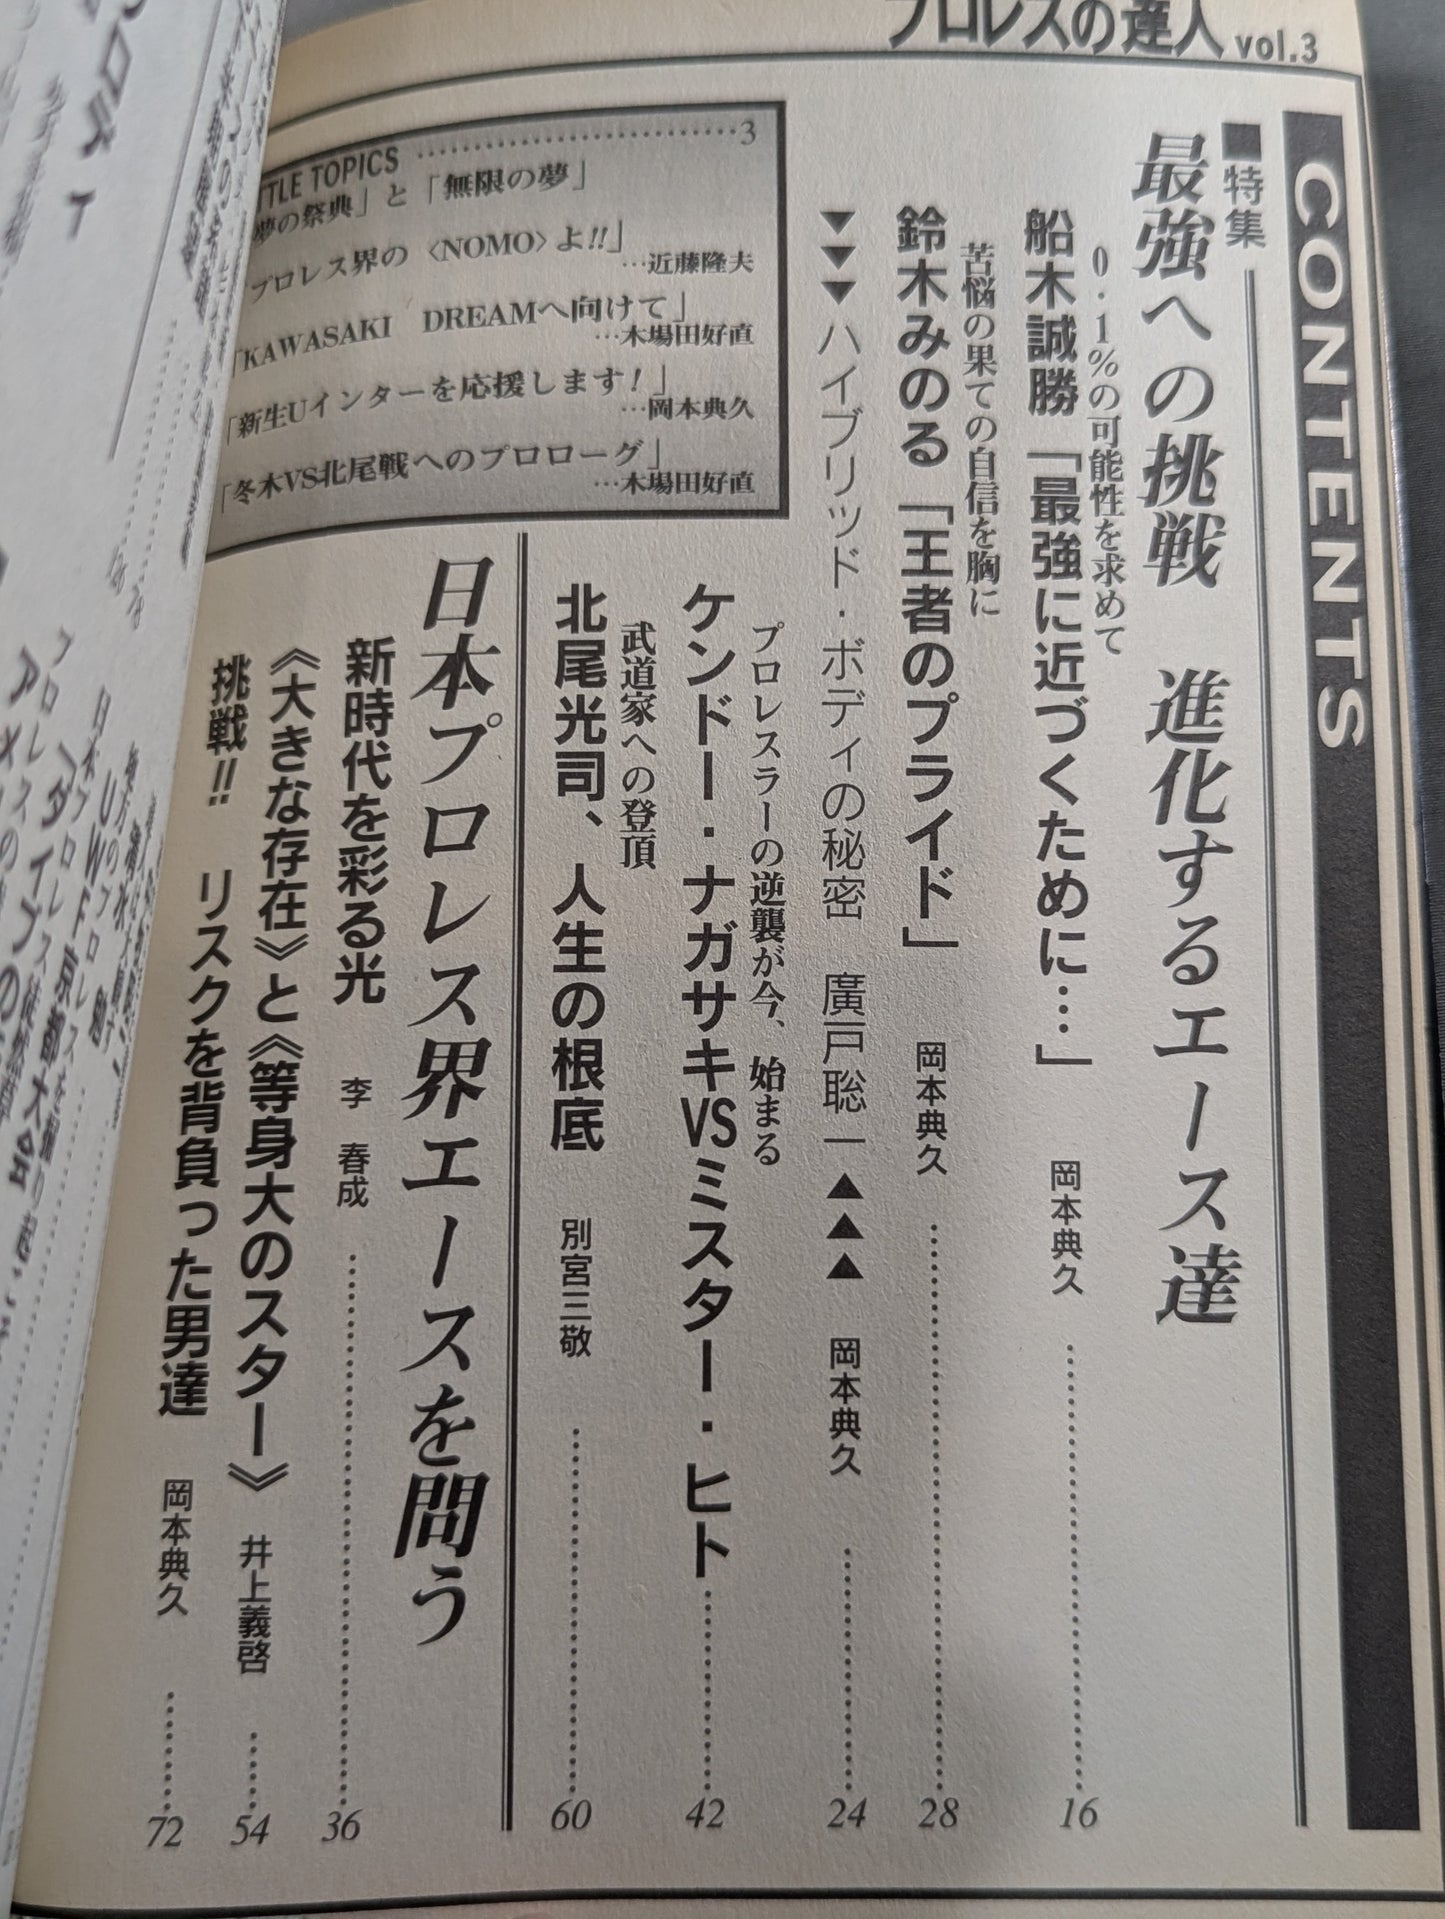 プロレスの達人 vol.3
CONTENTS
■特集
最強への挑戦 進化するエース達
0.1%の可能性を求めて
船木誠勝「最強に近づくために…」 岡本典久 16
苦悩の果ての自信を胸に
鈴木みのる「王者のプライド」 岡本典久 28
▼▼▼ハイブリッド・ボディの秘密 廣戸聡一▲▲▲ 岡本典久 24
プロレスラーの逆襲が今、始まる
ケンドー・ナガサキVSミスター・ヒト 42
武道家への登頂
北尾光司、人生の根底 別宮三敬 60
TTLE TOPICS 3
夢の祭典」と「無限の夢」
プロレス界の〈NOMO〉よ!!」
…近藤隆夫
「KAWASAKI DREAMへ向けて」
…木場田好直
「新生Uインターを応援します!」
…岡本典久
「冬木VS北尾戦へのプロローグ」
…木場田好直
日本プロレス界エースを問う
新時代を彩る光 李 春成 36
《大きな存在》と《等身大のスター》 井上義啓 54
挑戦!! リスクを背負った男達 岡本典久 72